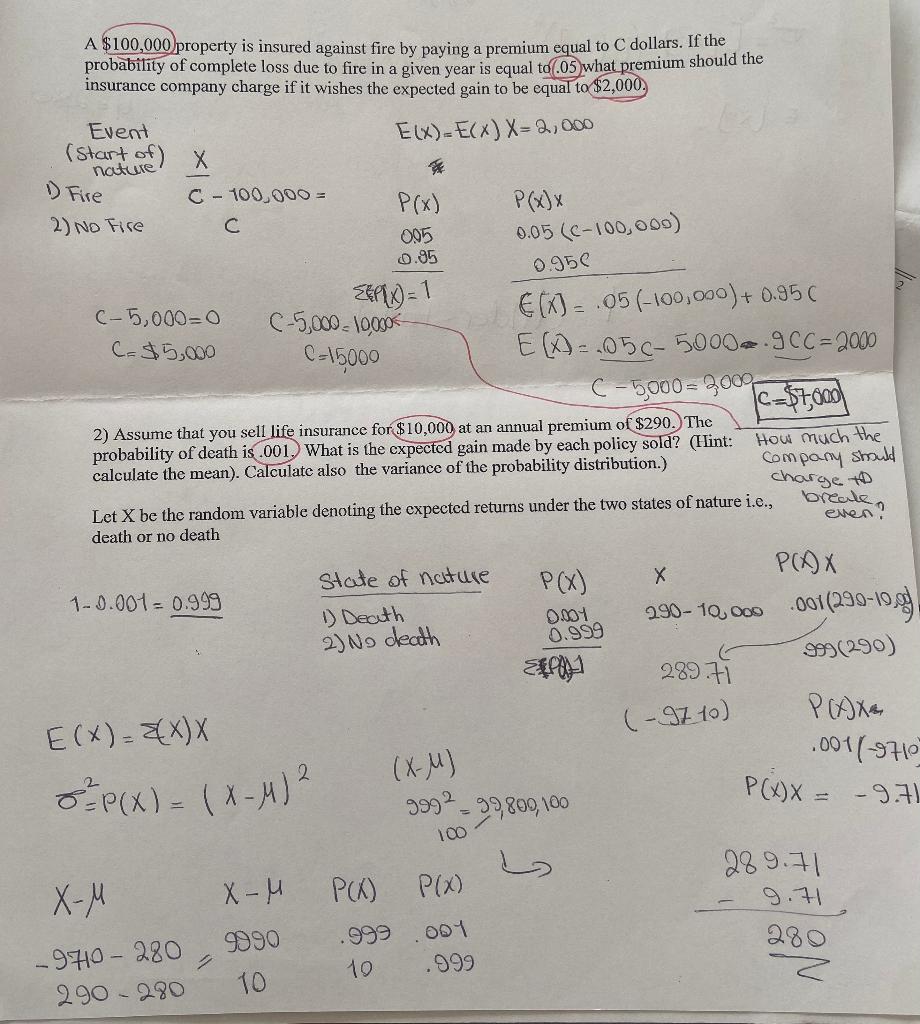 A $100,000 property is insured against fire by paying a premium equal to C dollars. If the
probability of complete loss due to fire in a given year is equal to .05 what premium should the
insurance company charge if it wishes the expected gain to be equal to $2,000.
Event
(Start of)
nature
X
E(x) = E(x) X = 2,000
1) Fire
C - 100,000 =
2) No Fire
C
P(x)
P(x)x
0.05
0.05 (C-100,000)
0.95
0.95C
P(x) = 1
E(x) = .05(-100,000) + 0.95C
C - 5,000 = 0
C - 5,000 = 10,000
C = $5,000
C = 15000
E(x) = .05C - 5000 .9CC = 2000
C - 5,000 = 2,000
C = $7,000
How much the
company should
charge to
breake
even?
2) Assume that you sell life insurance for $10,000 at an annual premium of $290. The
probability of death is .001. What is the expected gain made by each policy sold? (Hint:
calculate the mean). Calculate also the variance of the probability distribution.)
Let X be the random variable denoting the expected returns under the two states of nature i.e.,
death or no death
1 - 0.001 = 0.999
State of nature
P(x)
X
P(x)x
1) Death
0.001
290 - 10,000
.001(290-10,00)
2) No death
0.999
.999(290)
289.71
(-9710)
P(x)x
.001(-9710
P(x)x = -9.71
E(x) = Σ(x)X
σ² = P(x) = (X-μ)²
(X-μ)
999² = 99,800,100
100
289.71
- 9.71
280
X-μ
X-μ
P(x)
P(x)
-9710 - 280 =
9990
.999
.001
290 - 280
10
10
.999